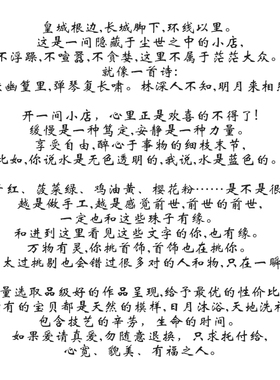 皇城根边,长城脚下,环线以里。
这是一间隐藏于尘世之中的小店,
不浮躁、不喧嚣、不贪婪,这里不属于茫茫大众。
就像一首诗:
幽篁里,弹琴复长啸。林深人不知,明月来相
开一间小店,心里正是欢喜的不得了!
缓慢是一种笃定,安静是一种力量。
享受自由,醉心于事物的细枝末节,
比如,你说水是无色透明的,我说,水是蓝色的。
红、菠菜绿、鸡油黄、樱花粉……是不是很
越是做手工,越是感觉前世,前世的前世,
一定也和这些珠子有缘。
和进到这里看见这些文字的你,也有缘。
万物有灵,你挑首饰,首饰也在挑你。
太过挑剔也会错过很多对的人和物,只在一瞬
量选取品级好的作品呈现,给予最优的性价比
有的宝贝都是天然的模样,日月沐浴,天地洗
包含技艺的辛劳,生命的时间。
如果爱请真爱,勿随意退换,只求托付给
心宽、貌美、有福之人。